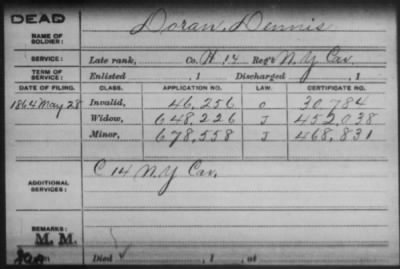 DEAD
NAME OF SOLDIER: Doran, Dennis
SERVICE: Late rank, Co. H 14 Reg't N.Y. Cav.
TERM OF SERVICE: Enlisted , 1 Discharged , 1
DATE OF FILING. CLASS. APPLICATION NO. LAW. CERTIFICATE NO.
1864 May 28 Invalid, 46,256 O 30,784
Widow, 648,226 J 452,038
Minor, 678,558 J 468,831
ADDITIONAL SERVICES: C 14 N.Y. Cav.
REMARKS:
M. M.
Died , 1 , at